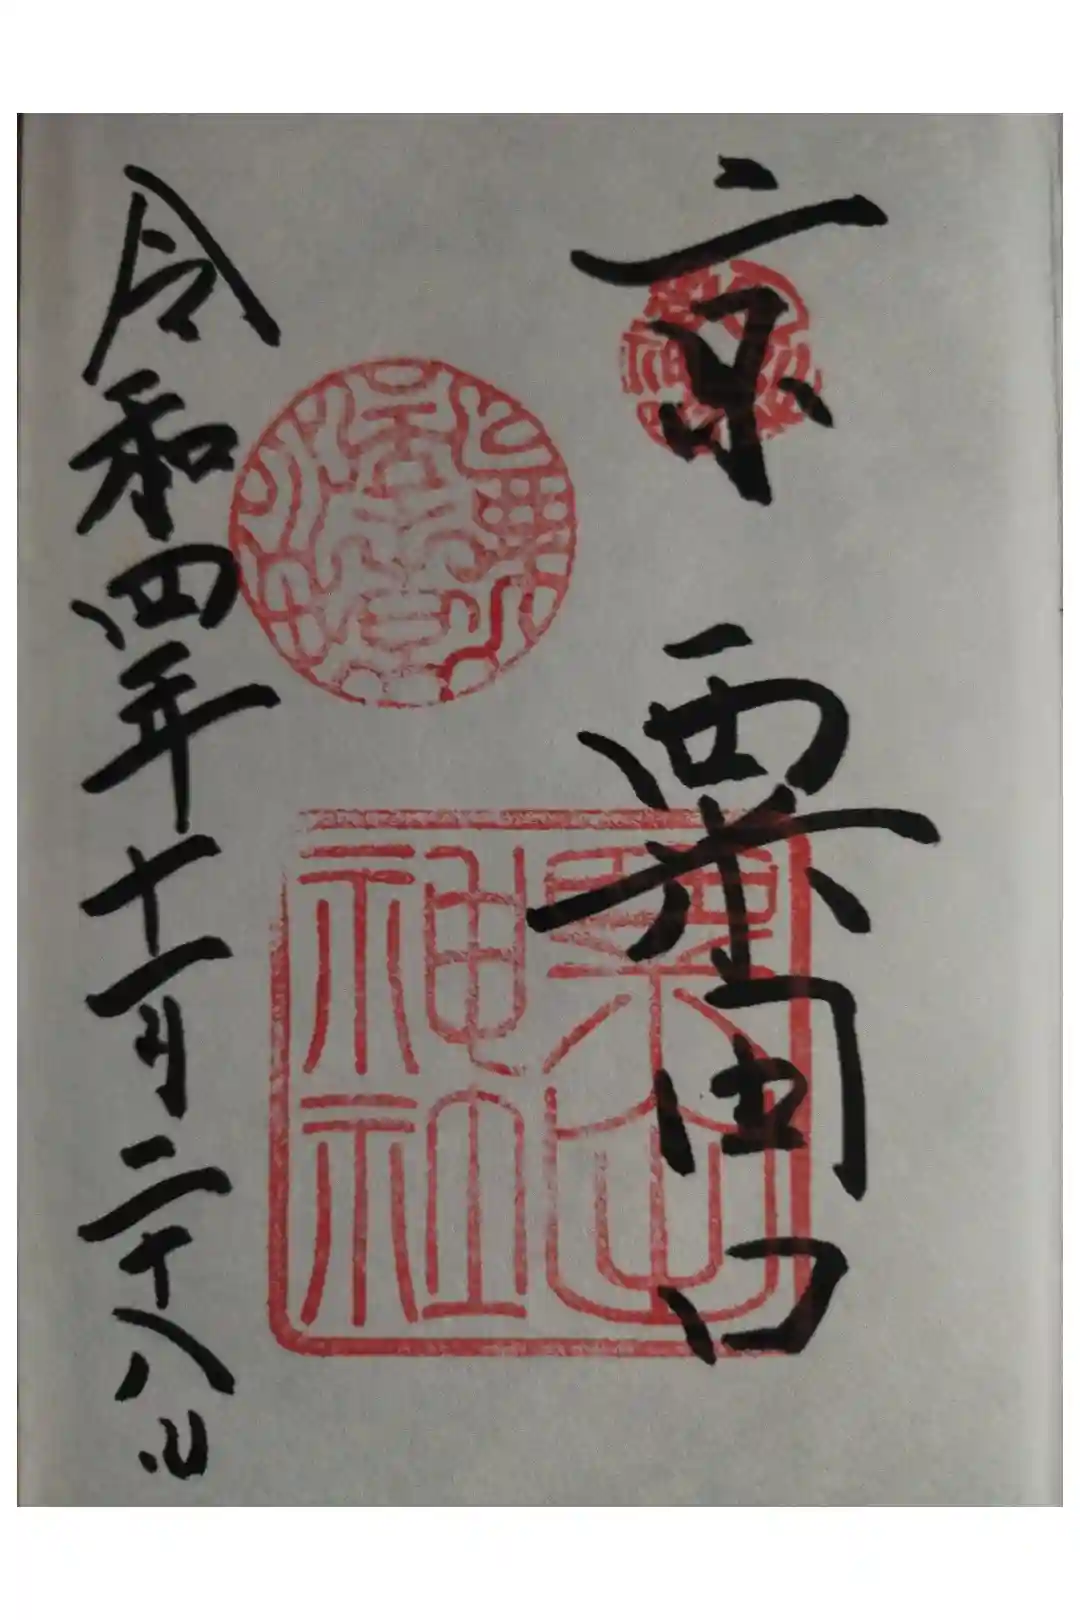 京 粟田口
粟田
神社
令和四年十一月二十八日